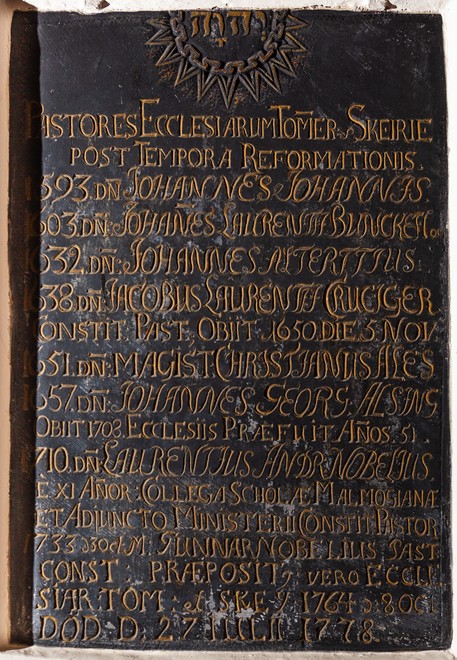 יהוה
PASTORES ECCLESIARUM TOM̄ER. & SKEIRIE
POST TEMPORA REFORMATIONIS.
1593. DN̄: JOHANNES JOHANNIS
1603. DN̄: JOHAN̄ES LAURENTII BUNCKEFLO
1632. DN̄: JOHANNES
1638. DN̄: JACOBUS LAURENTII CRUCIGER
CONSTIT. PAST. OBIIT. 1650. DIE. 5 NOV.
1651. DN̄: MAGIST. CHRISTIANUS
1657. DN̄: JOHANNES GEORG. ALSING,
OBIIT 1708. ECCLESIIS PRÆFUIT AN̄OS. 51.
1710. DN̄: LAURENTIUS ANDR. NOBELIUS
EX XI AN̄OR: COLLEGA SCHOLÆ MALMOGIANÆ
ET ADJUNCTO MINISTERII CONSTIT: PASTOR
1733 M. GUNNAR NOBELIUS PAST
CONST PRÆPOSIT, VERO ECCLE
SIAR. TOM: & SKE 1764 D: 8 OCT
DÖD D: 27 IULII 1778